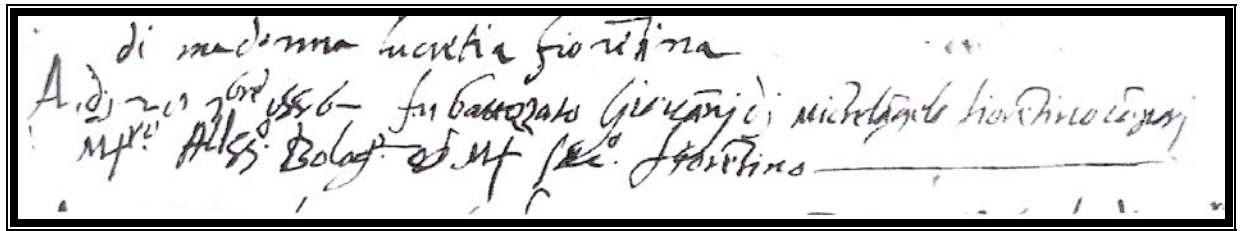 di madonna lucretia fiorẽtina
A di 20 9bre 1556 fu battezzato Giovãnj di Michelãgelo fiorẽtino cõparj
Mro. Aless. Bolog. et M fiorẽtino